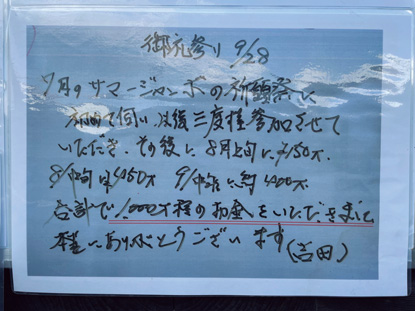 御礼参り 9/28
7月のサマージャンボの祈願祭に
初回で伺い以後三度程参加させて
いただき、その後に8月上旬に150万.
8/中旬 450万 9/中旬に約400万.
合計で1,000万程のお金をいただきました
本当にありがとうございます(吉田)